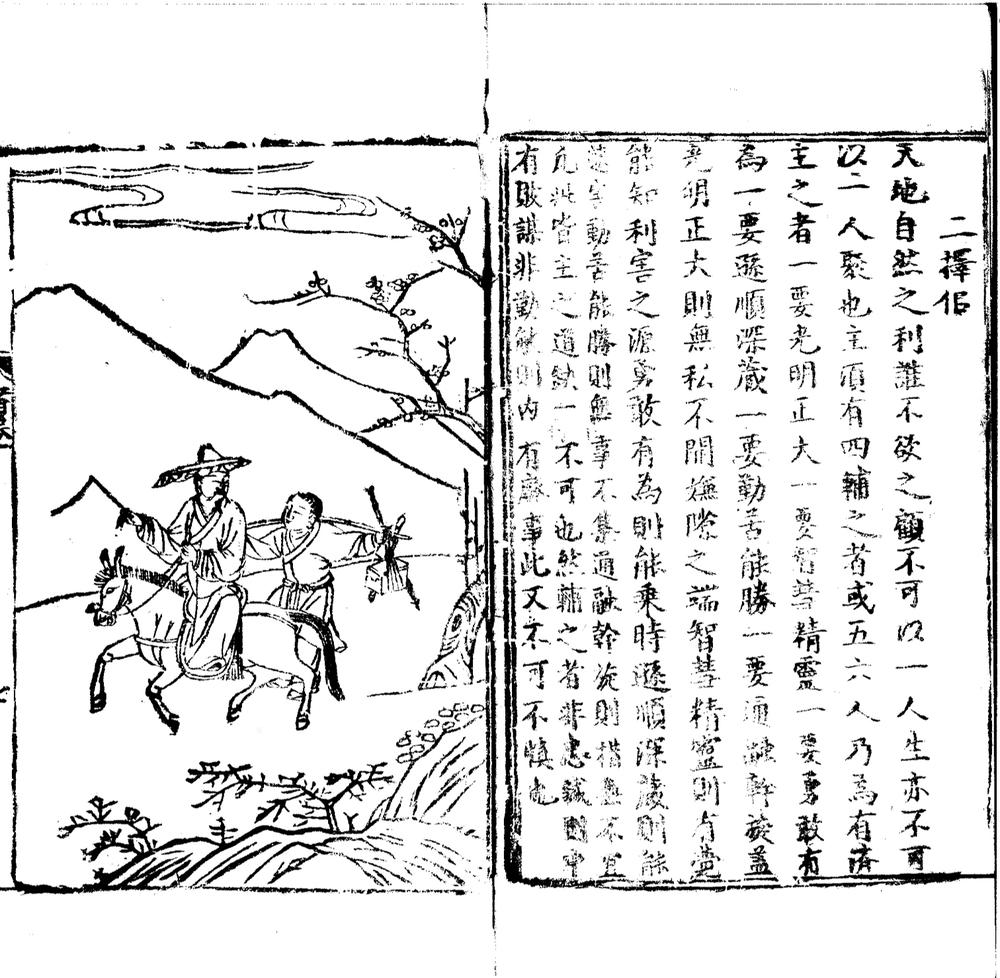 二擇侣
天地自然之利誰不欲之顧不可以一人生亦不可
以二人聚也主湏有四輔之者或五六人乃為有濟
主之者一要光明正大一要智彗精靈一要勇敢有
為一要遜順深藏一要勤苦能勝一要通融幹旋盖
光明正大則無私不開嫌隙之端智彗精靈則有
能知利害之源勇敢有為則能乘時遜順深藏則能
害勤苦能勝則無事不集通融幹旋則措無不宜
凡此皆主之道缺一不可也然輔之者非忠誠則中
有敗謀非勤敏則内有廢事此又不可不慎也